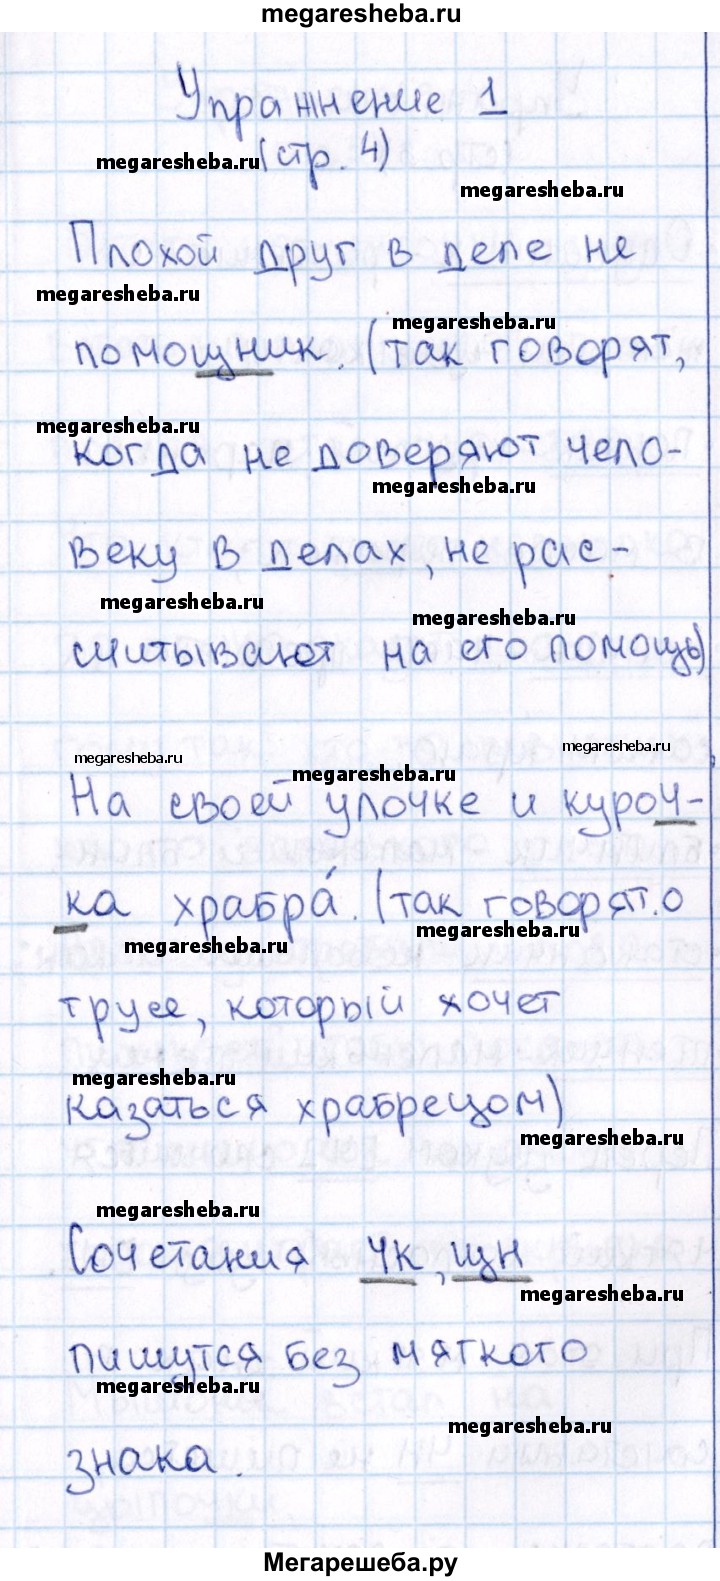 megaresheba.ru
Упражнение 1
megaresheba.ru (стр. 4)
megaresheba.ru
Плохой друг в деле не
megaresheba.ru
megaresheba.ru
помощник. (так говорят,
megaresheba.ru
когда не доверяют чело-
megaresheba.ru
веку в делах, не рас-
megaresheba.ru
megaresheba.ru
считывают на его помощь)
megaresheba.ru
megaresheba.ru
megaresheba.ru
На своей улочке и куроч-
ка храбра́. (так говорят о
megaresheba.ru
megaresheba.ru
трусе, который хочет
megaresheba.ru
казаться храбрецом)
megaresheba.ru
megaresheba.ru
Сочетания чк, щн
megaresheba.ru
пишутся без мягкого
megaresheba.ru
megaresheba.ru
знака.
Мегарешеба.ру